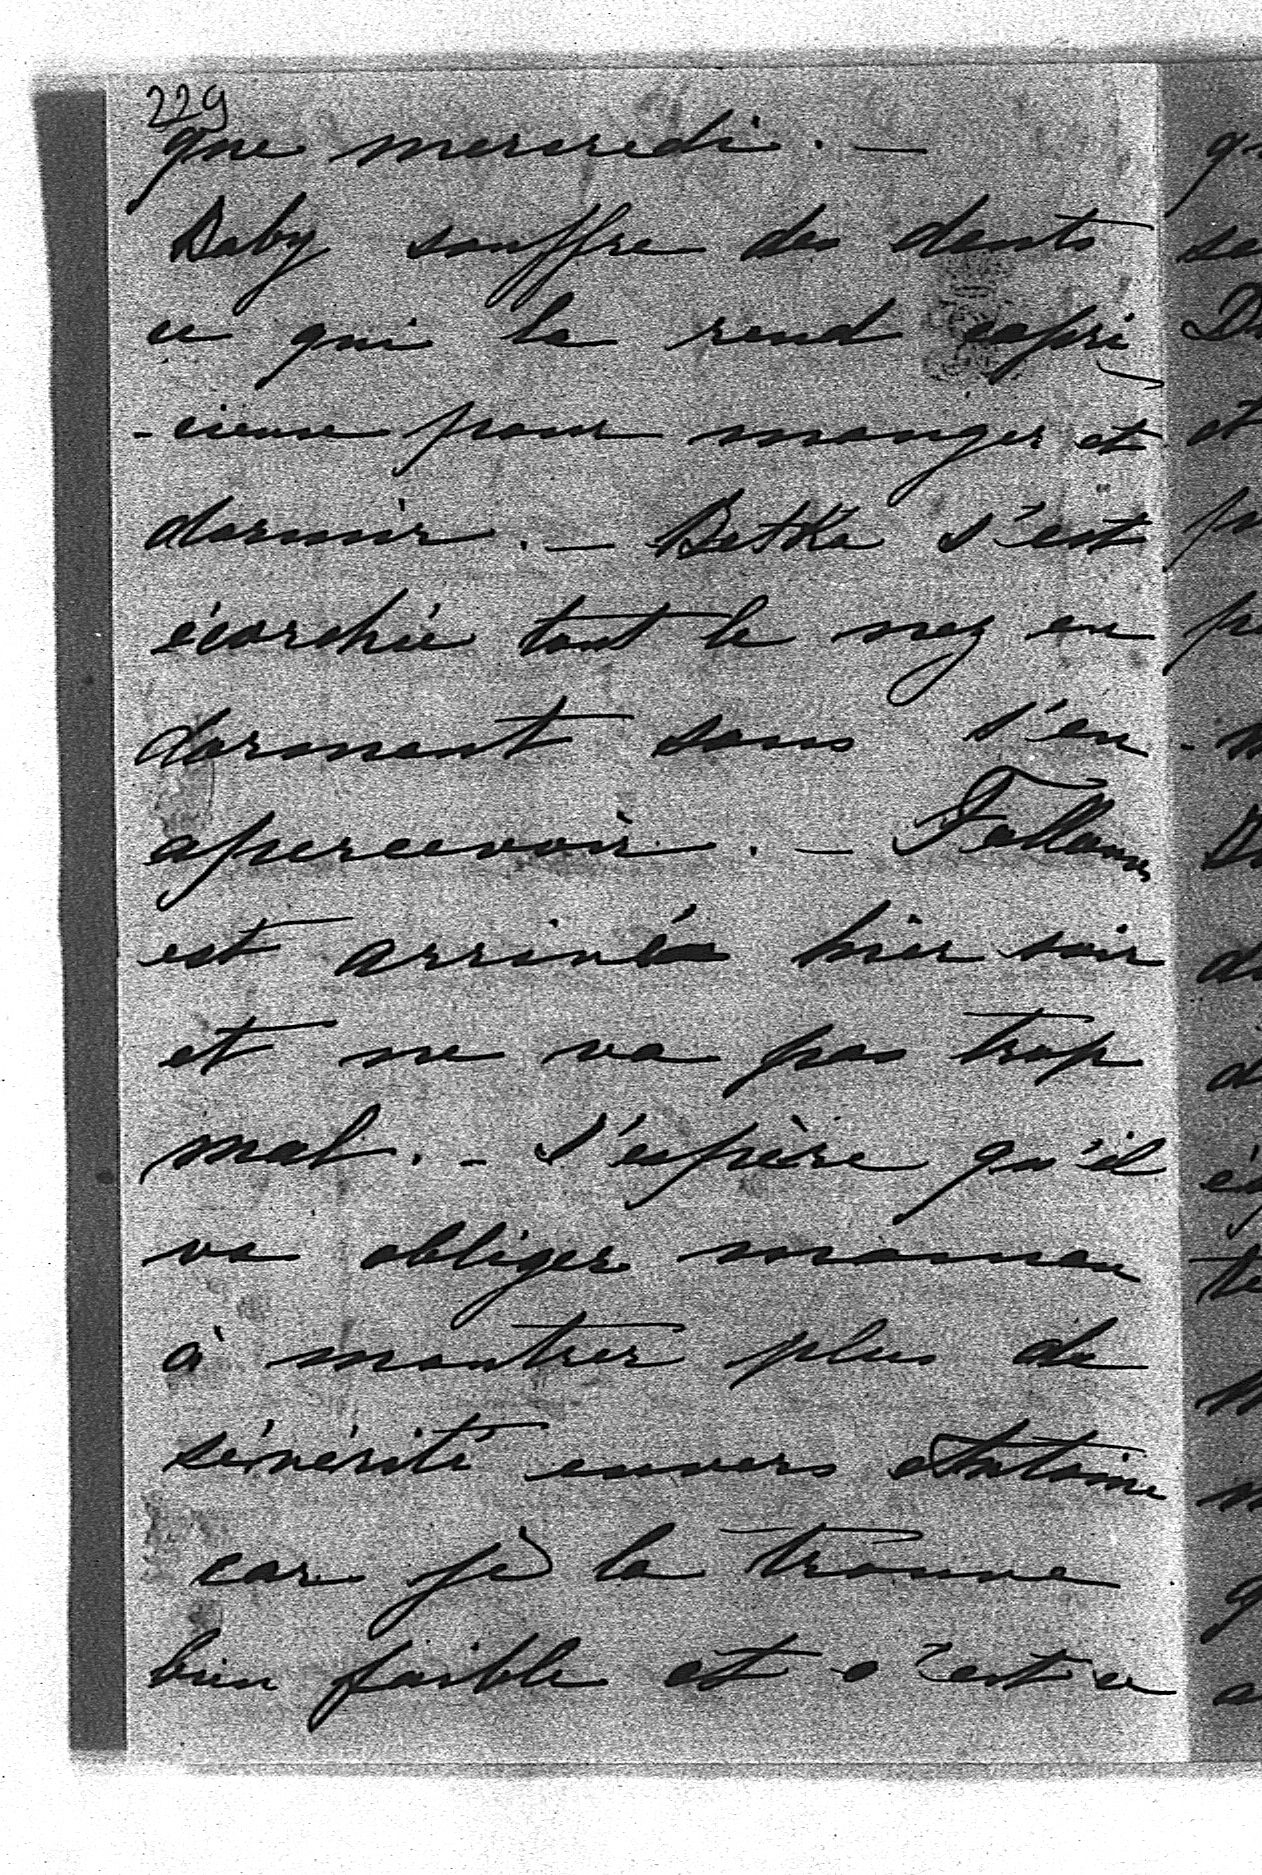 229
que mercredi. —
Baby souffre des dents
ce qui la rend capri
-cieuse pour manger et
dormir. — Betka s'est
écorchée tout le nez en
dormant sans s'en
apercevoir. —
est arrivé hier soir
et ne va pas trop
mal. - J'espère qu'il
va obliger maman
à montrer plus de
sévérité envers Antoine
car je la trouve
bien faible et c'est ce